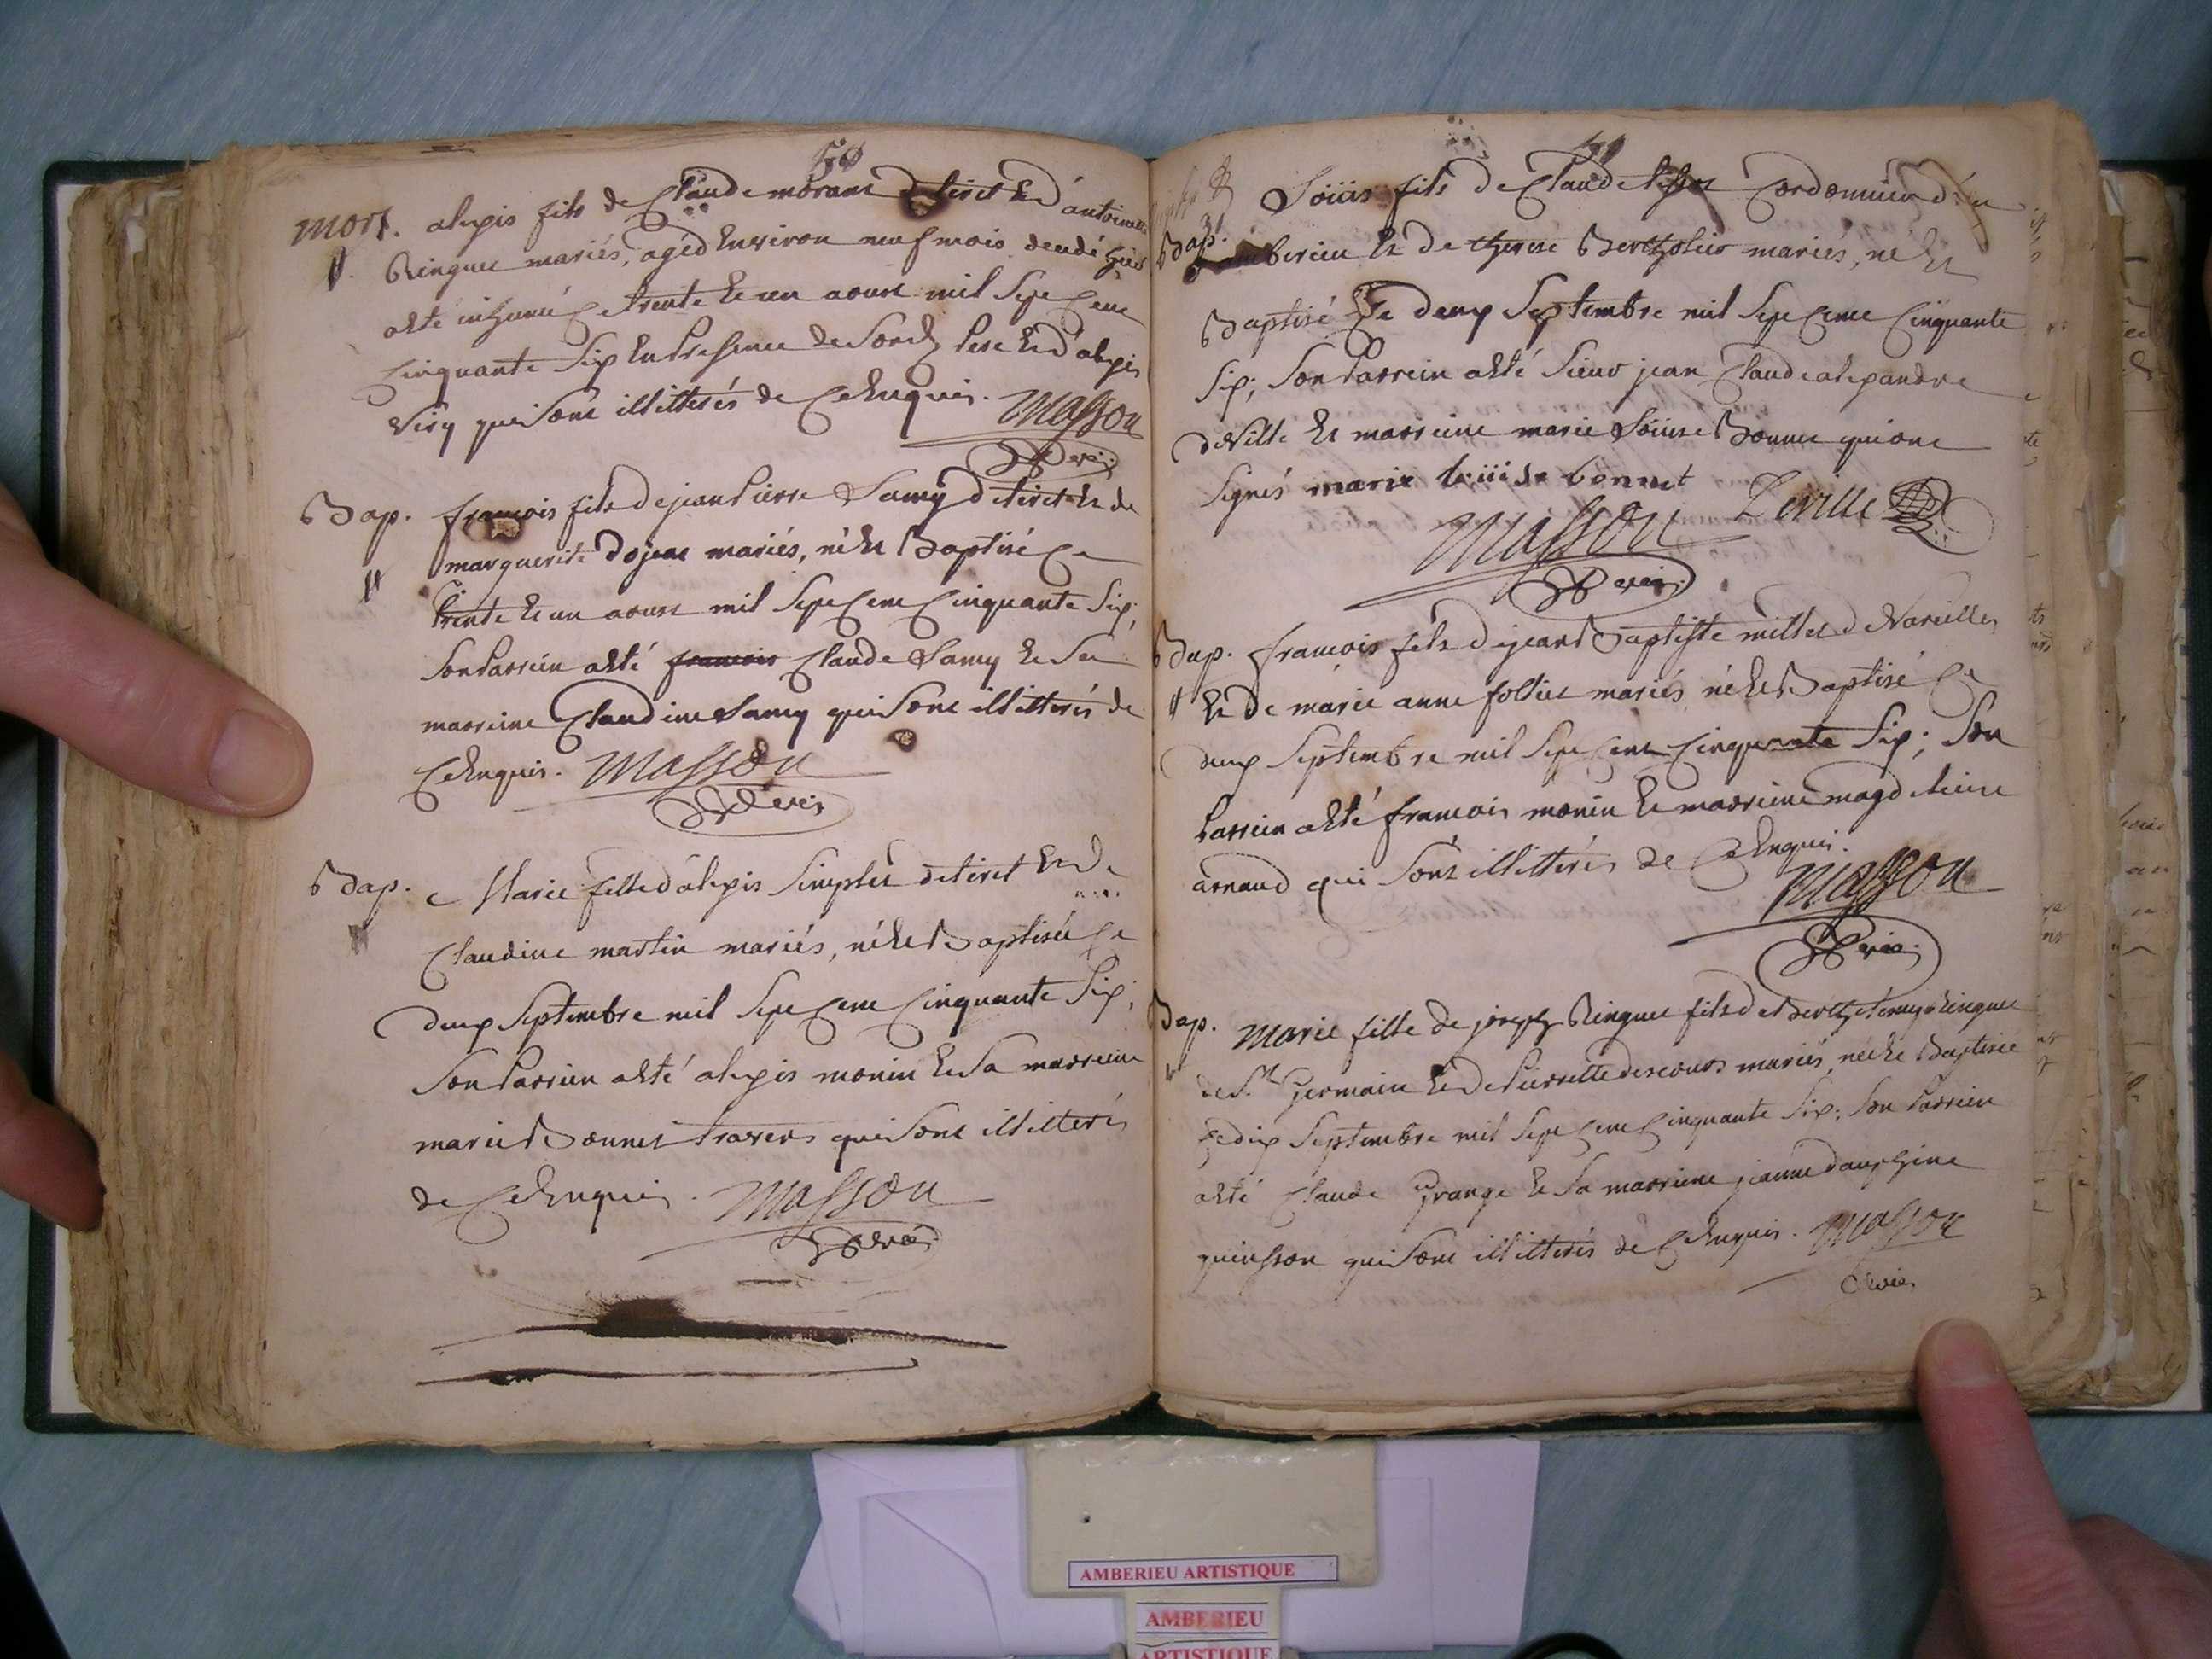 50
mort. alexis fils de Claude morant de tiret et d'antoinette
Ringuet mariés, agéd Environ neuf mois decedé hier
aeté inhumé Ce trente et un aoust mil Sept Cent
Cinquante Six En Presence de Sond Pere et d'alexis
qui Sont illitterés de Ce Enquis. Masson
Curé
Bap. françois fils de jean Pierre Lamy de tiret et de
marguerite dojeat mariés, né et Baptisé Ce
trente et un aoust mil Sept Cent Cinquante Six;
Son Parrein aeté françois Claude Lamy et Sa
marreine Claudine Lamy qui Sont illitterés de
Ce Enquis. Masson
Curé
Bap. Marie fille d'alexis Simplet de tiret et de
Claudine martin mariés, née et Baptisée Ce
deux Septembre mil Sept Cent Cinquante Six;
Son Parrein aeté alexis monin et Sa marreine
marie Bonnet travers qui Sont illitterés
de Ce Enquis. Masson
Curé
Loüis fils de Claude Cordonnier d'
Bap. amberieu et de therese Bertholier mariés, né et
Baptisé Ce deux Septembre mil Sept Cent Cinquante
Six; Son Parrein aeté Sieur jean Claude alexandre
deville et marreine marie Loüise Bonnet qui ont
Signés marie loüise bonnet Deville
Masson
Curé
Bap. françois fils de jean Baptiste millet de Vareilles
et de marie anne folliet mariés né et Baptisé Ce
deux Septembre mil Sept Cent Cinquante Six; Son
Parrein aeté francois monin et marreine magdeleine
arnaud qui Sont illitterés de Ce Enquis.
Masson
Curé
Bap. Marie fille de joseph Ringuet fils de Berthelemy Ringuet
de St Germain et de Pierrette descours mariés, née et Baptisée
Ce dix Septembre mil Sept Cent Cinquante Six; Son Parrein
aeté Claude Grange et Sa marreine jeanne dauphine
quinson qui Sont illitterés de Ce Enquis. Masson
Curé
AMBERIEU ARTISTIQUE
AMBERIEU
ARTISTIQUE